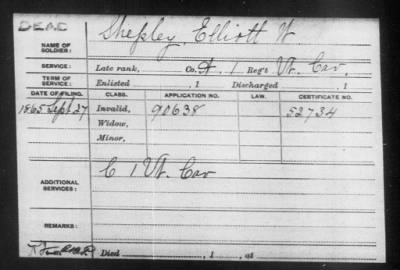 DEAD
NAME OF SOLDIER: Shepley, Elliott W
SERVICE: Late rank, Co. A, 1 Reg't Vt. Cav.
TERM OF SERVICE: Enlisted , 1 Discharged , 1
DATE OF FILING. CLASS. APPLICATION NO. LAW. CERTIFICATE NO.
1865 Sept 27 Invalid, 90638 52734
Widow,
Minor,
ADDITIONAL SERVICES: C 1 Vt. Cav
REMARKS:
Died , 1 , at